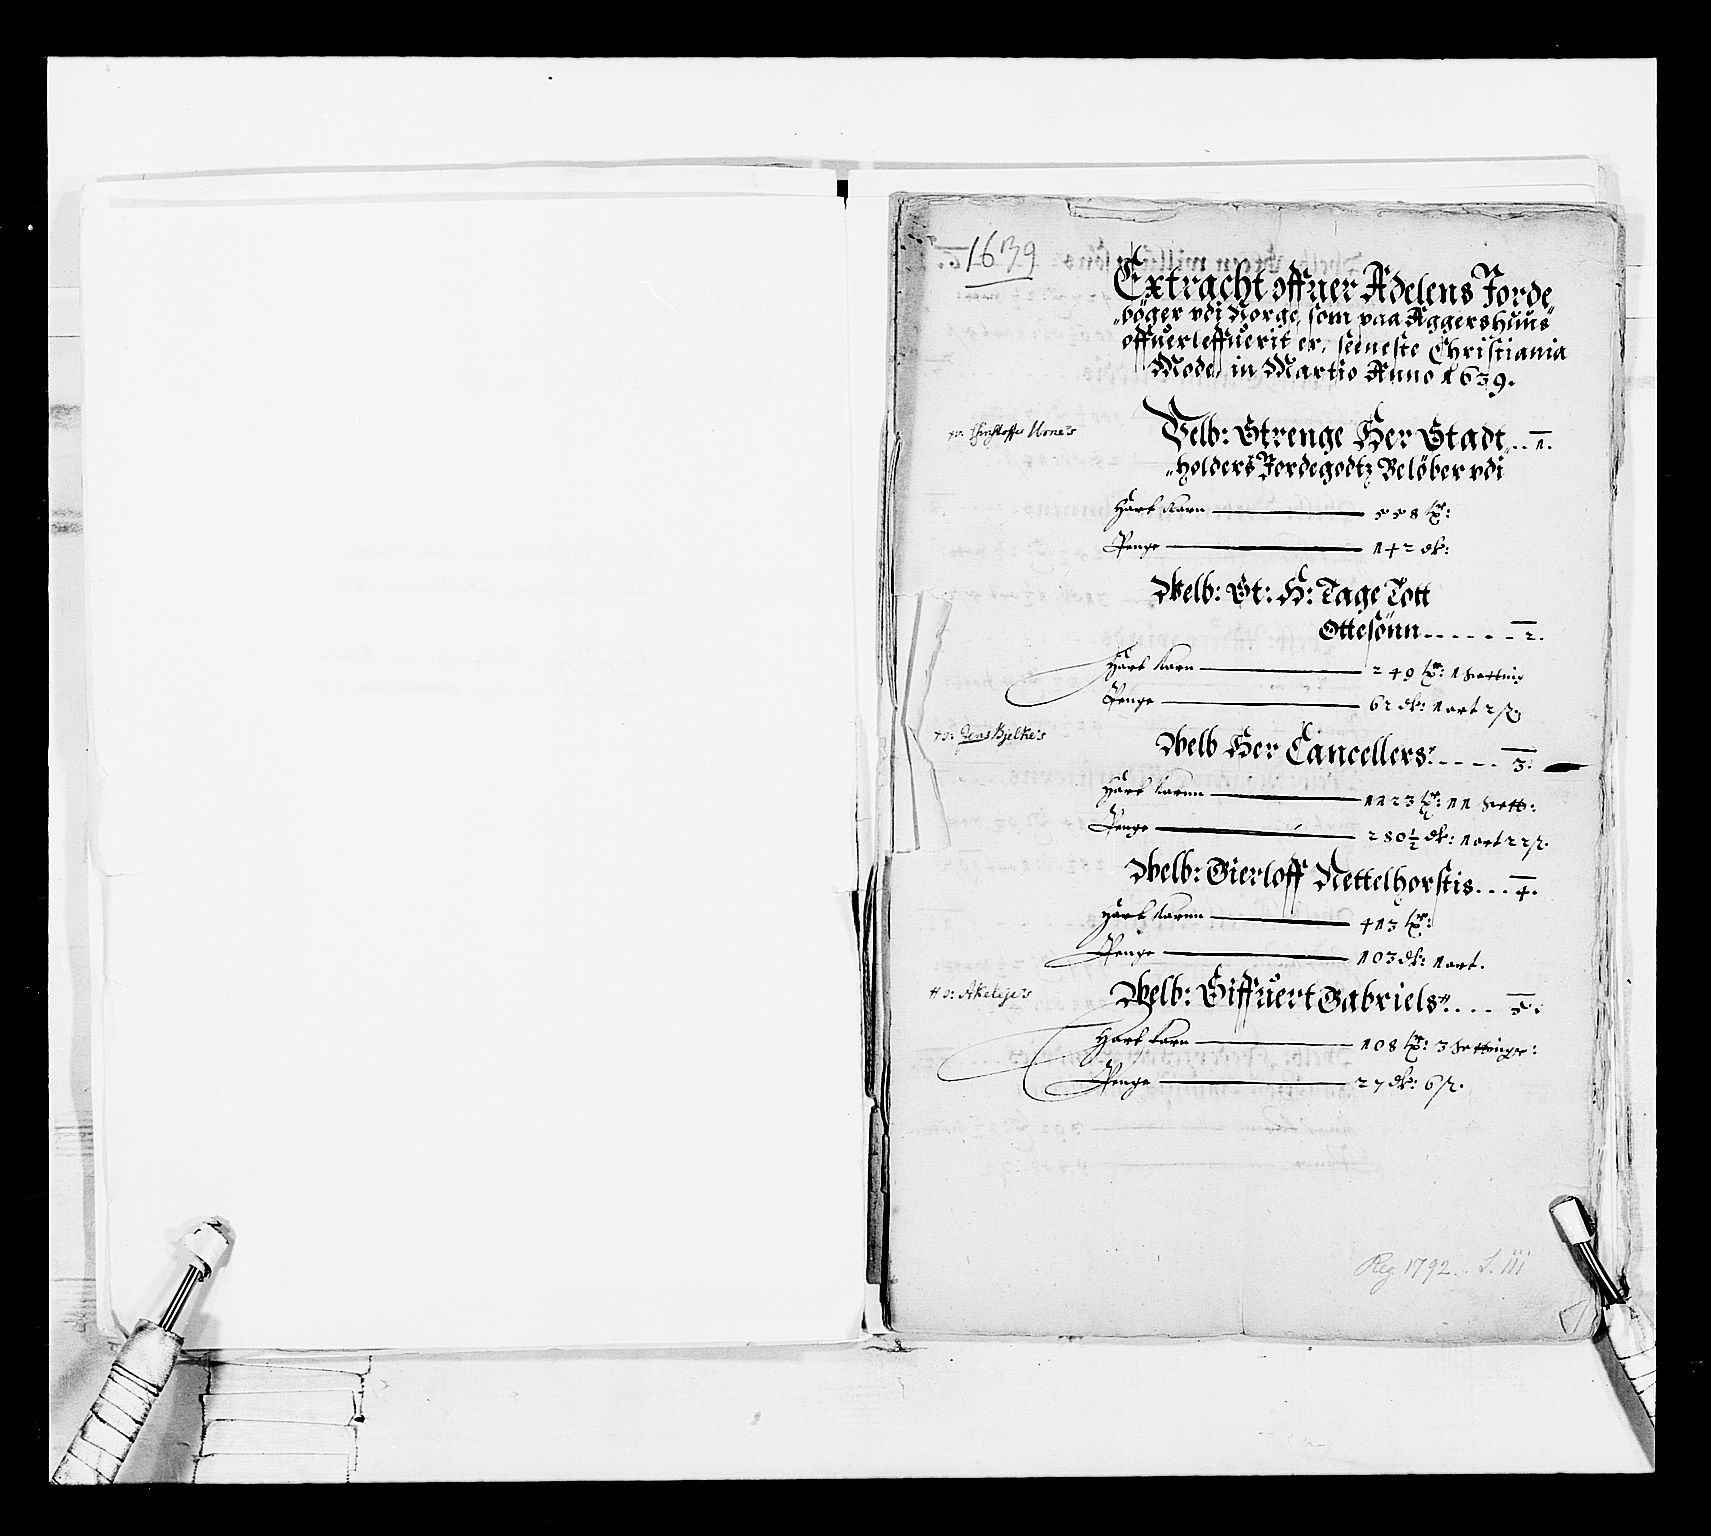 1639
Extracht offuer Adelens Jorde
böger vdi Norge, som paa Aggershuus
offuerleffuerit er, seeneste Christiania
Mode, in Martio Anno 1639.
Christoffer Urne's
Velb: Strenge Her Stadt... 1.
holders Jordegodtz Belöber vdi
Hart Korn — 558
Penge — 142 dr:
Welb: St: H: Tage Tott
Ottesönn...... 2.
Hart Korn — 249 1 Setting
Penge — 62 dr: 1 ort 2 s.
Jens Bjelke's
Welb Her Cancellers..... 3.
Hart Kornn — 1123 11 Sett:
Penge — 280½ dr: 1 ort 22 s.
Welb: Gierloff Nettelhorstis... 4.
Hart Kornn — 413
Penge — 103 dr: 1 ort.
Akeleje's
Welb: Siffuert Gabriels.... 5.
Hart Korn — 108 3 Settinger:
Penge — 27 dr: 6 s.
Reg 1792. S. III